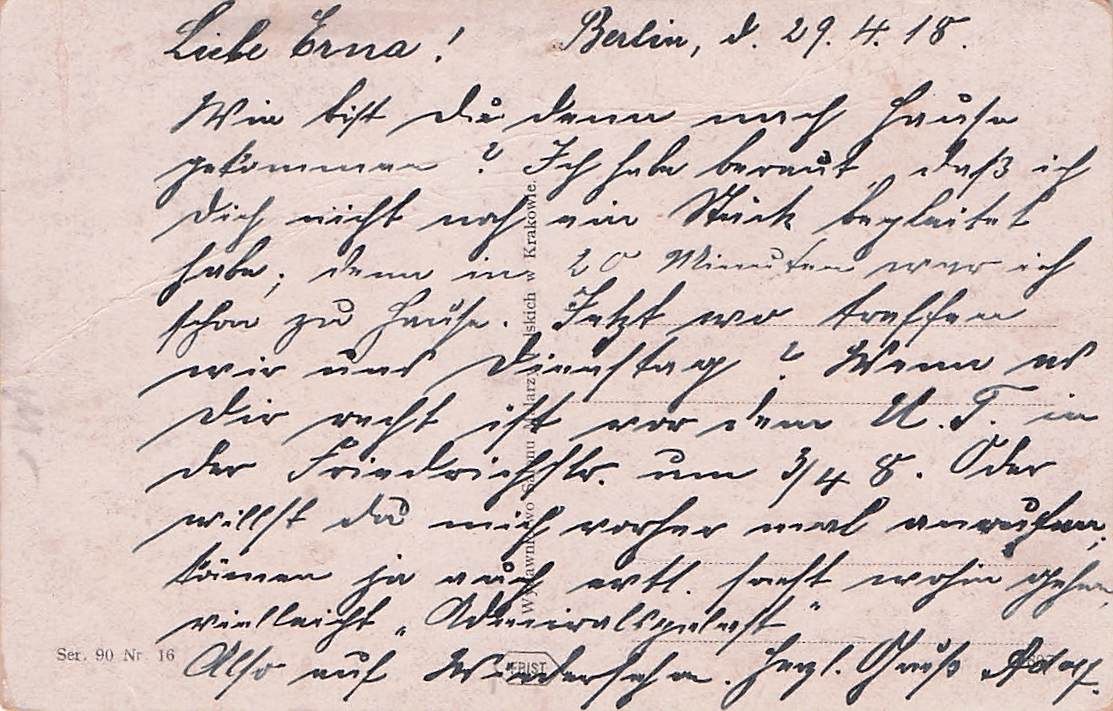 Liebe Erna! Berlin, d. 29.4.18.
Wie bist Du denn nach Hause
gekommen? Ich habe bereut, daß ich
Dich nicht noch ein Stück begleitet
habe, denn in 20 Minuten war ich
schon zu Hause. Jetzt wo treffen
wir uns Dienstag? Wenn es
Dir recht ist vor dem U.T. in
der Friedrichstr. um 3/4 8. Oder
willst du mich vorher mal anrufen,
können ja auch evtl. sonst wohin gehen,
vielleicht „Admiralspalast"
Also auf Wiedersehn. Herzl. Gruß Adolf.
Wydawnictwo Salonu Malarzy Polskich w Krakowie.
Ser. 90 Nr 16